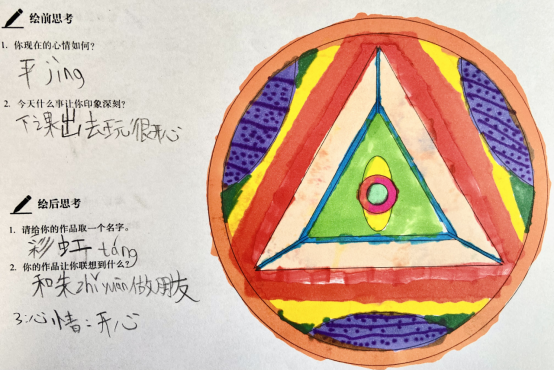 绘前思考
1. 你现在的心情如何?
平jìng
2. 今天什么事让你印象深刻?
下课出去玩很开心
绘后思考
1. 请给你的作品取一个名字。
彩虹tóng
2. 你的作品让你联想到什么?
和朱zhi yuàn做朋友
3:心情:开心